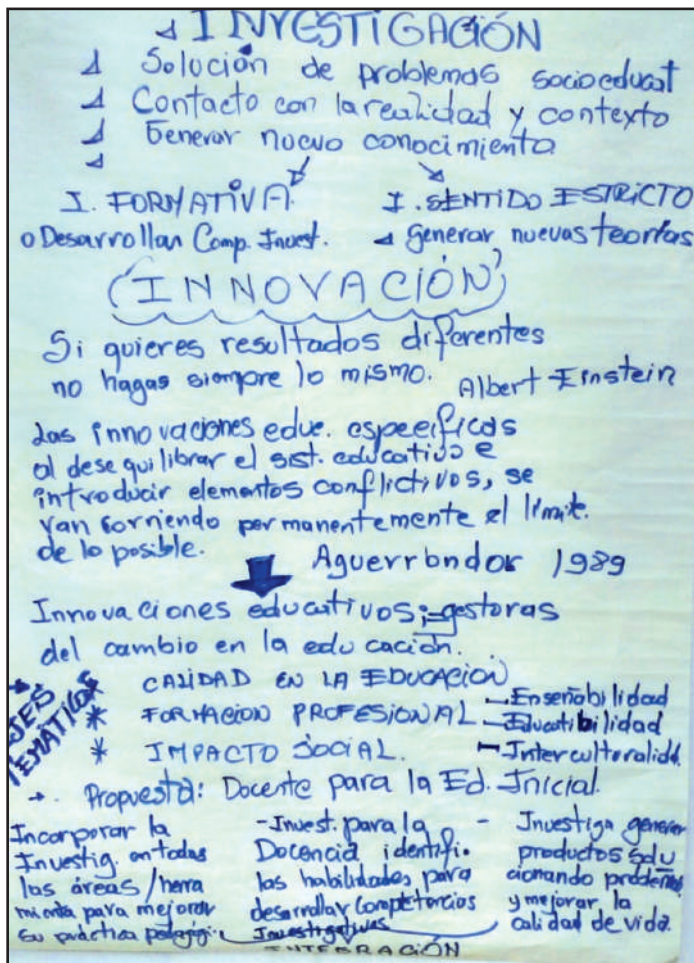 INVESTIGACIÓN
Solución de problemas socioeducat
Contacto con la realidad y contexto
Generar nuevo conocimiento
I. FORMATIVA. I. SENTIDO ESTRICTO
o Desarrollan Comp. Invest. generar nuevas teorías
INNOVACIÓN
Si quieres resultados diferentes
no hagas siempre lo mismo. Albert Einstein
Las innovaciones educ. específicas
al desequilibrar el sist. educativo e
introducir elementos conflictivos, se
van corriendo permanentemente el límite.
de lo posible. Aguerrondor 1989
Innovaciones educativos; gestoras
del cambio en la educación.
EJES
TEMÁTICOS
* CALIDAD EN LA EDUCACIÓN
* FORMACION PROFESIONAL
* IMPACTO SOCIAL.
- Enseñabilidad
- Educatibilidad
- Interculturalidd.
Propuesta: Docente para la Ed. Inicial.
Incorporar la
Investig. en todas
las áreas / herra
mienta para mejorar
su práctica pedagógi.
- Invest. para la
Docencia identifi.
las habilidades para
desarrollar competencias
Investigativas
- Investiga generar
productos solu
cionando problemas
y mejorar la
calidad de vida.
INTEGRACIÓN